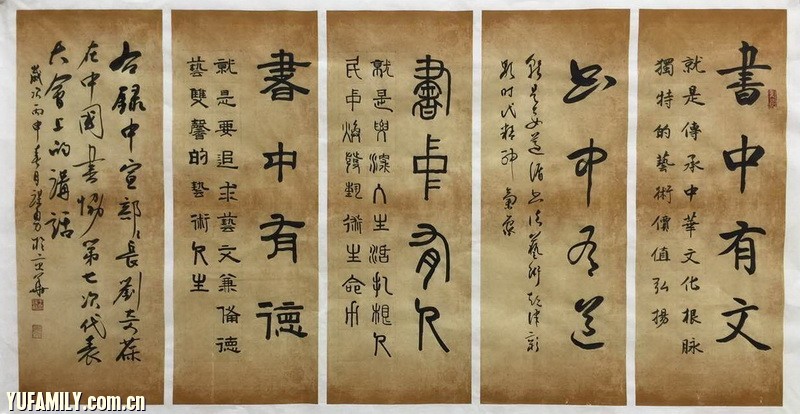 書中有文
就是傳承中華文化根脉
獨特的藝術價值弘揚
书中有道
就是要遵循书法藝術規律
时代精神氣象
書中有人
就是要深入生活扎根人
民中煥發藝術生命力
書中有德
就是要追求藝文兼備德
藝雙馨的藝術人生
右録中宣部々長劉奇葆
在中國書協第七次代表
大會上的講話
歲次丙申春月於京華
YUFAMILY.com.cn